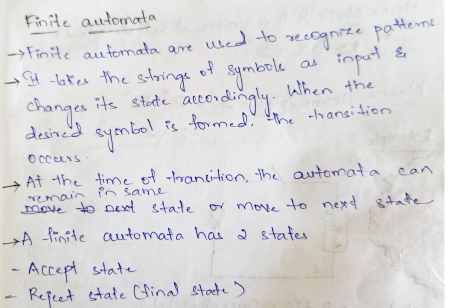 Finite automata
→ Finite automata are used to recognize patterns.
→ It takes the strings of symbols as input &
changes its state accordingly. When the
desired symbol is formed, the transition
occurs.
→ At the time of trancition, the automata can
remain in same
move to next state or move to next state
→ A finite automata has 2 states
- Accept state
- Reject state (final state)